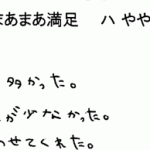 まあまあ満足 ハ やや
多かった。
が少なかった。
わせてくれた。